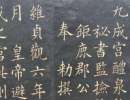 九成宮醴泉
秘書監檢
鉅鹿郡公
奉勅撰
維貞觀六年
月皇帝避
之宮此則